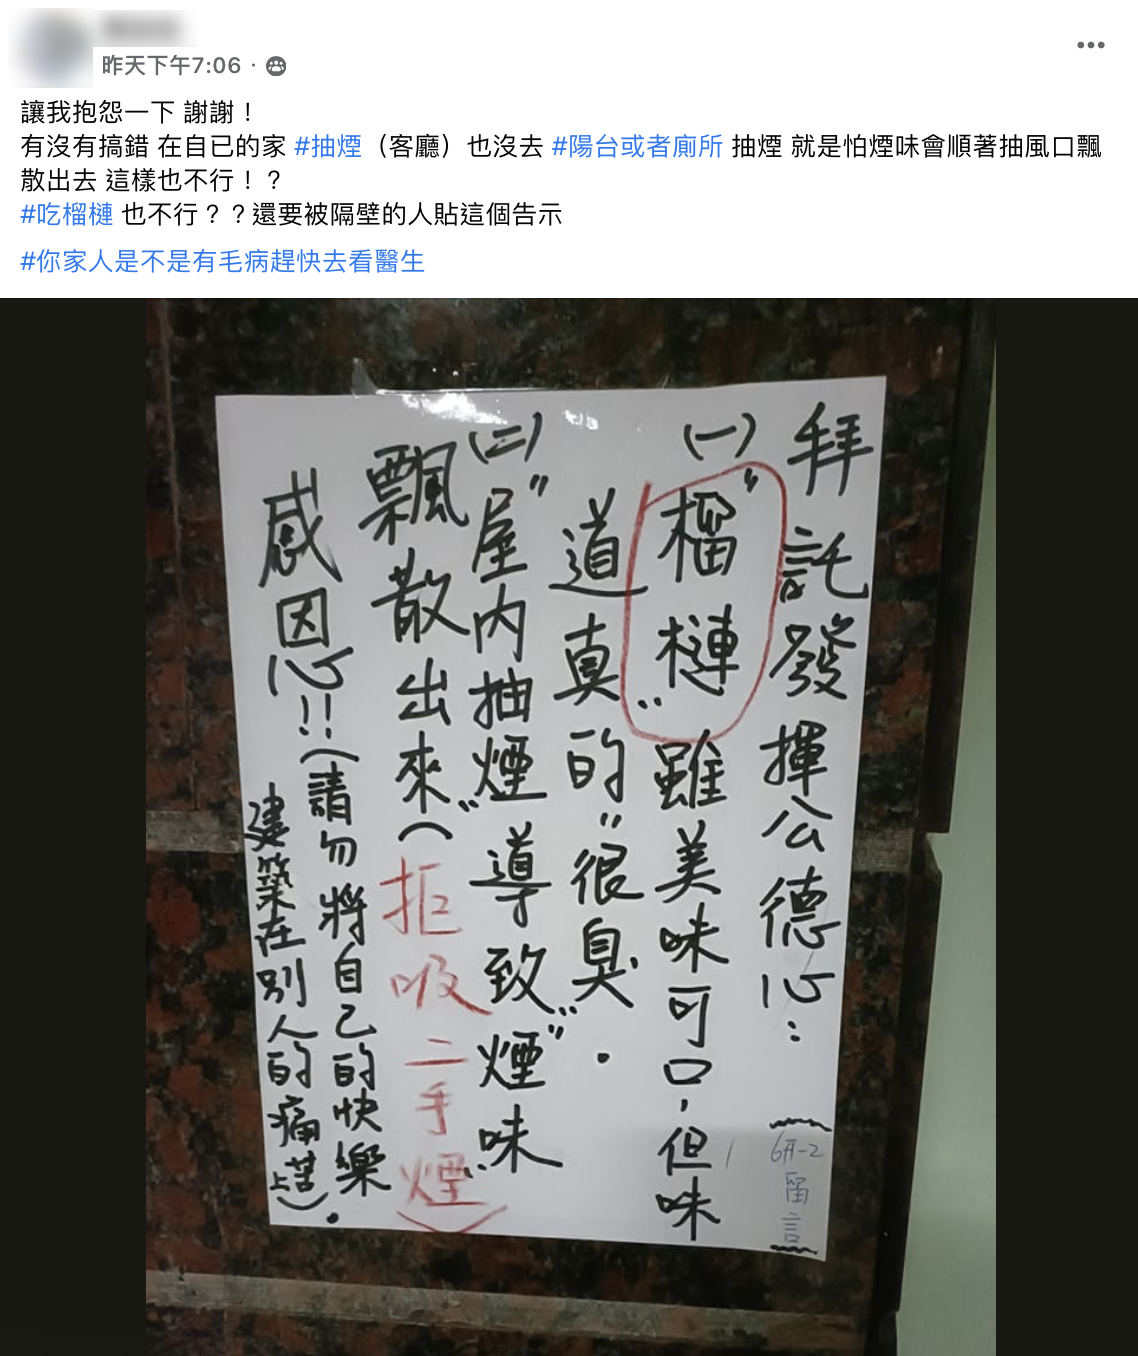 昨天下午7:06 ·
讓我抱怨一下 謝謝！
有沒有搞錯 在自已的家 #抽煙（客廳）也沒去 #陽台或者廁所 抽煙 就是怕煙味會順著抽風口飄
散出去 這樣也不行！？
#吃榴槤 也不行？？還要被隔壁的人貼這個告示
#你家人是不是有毛病趕快去看醫生
拜託發揮公德心：
(一)"榴槤"雖美味可口，但味
道真的"很臭"．
(二)"屋內抽煙"導致"煙味"
飄散出來(拒吸二手煙)
感恩!!(請勿將自己的快樂
建築在別人的痛苦上)．
留言